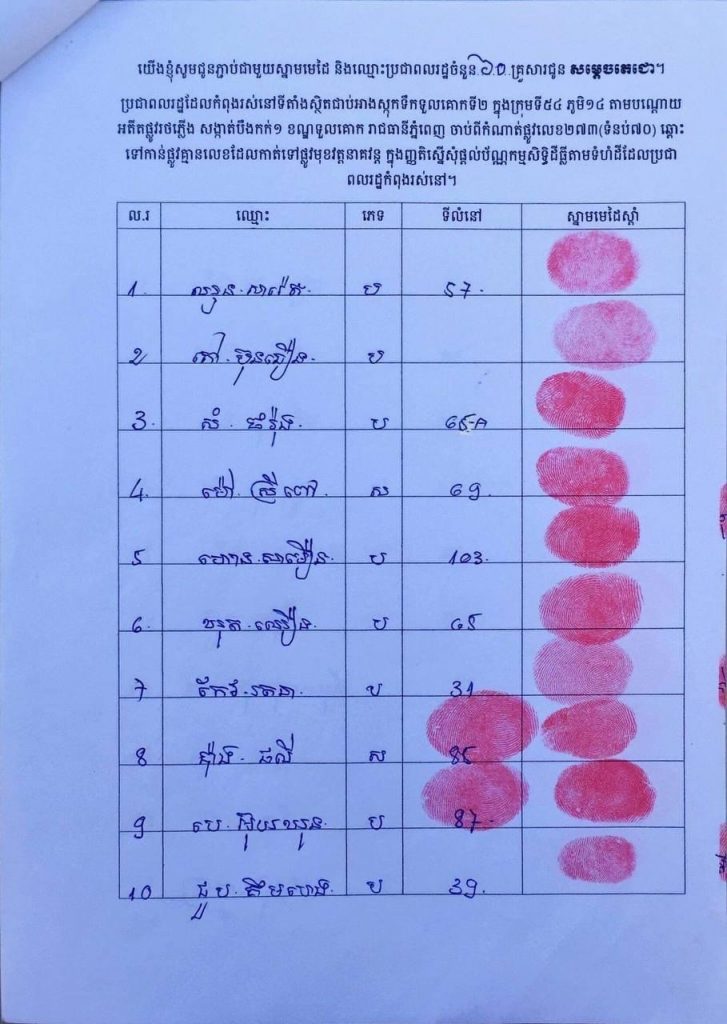 យើងខ្ញុំសូមជូនភ្ជាប់ជាមួយស្នាមមេដៃ និងឈ្មោះប្រជាពលរដ្ឋចំនួន ៦០ គ្រួសារជូន សម្តេចតេជោ។
ប្រជាពលរដ្ឋដែលកំពុងរស់នៅទីតាំងស្ថិតជាប់អាងស្តុកទឹកទួលគោកទី២ ក្នុងក្រុមទី៥៤ ភូមិ១៤ តាមបណ្តោយ
អតីតផ្លូវរថភ្លើង សង្កាត់បឹងកក់១ ខណ្ឌទួលគោក រាជធានីភ្នំពេញ ចាប់ពីកំណាត់ផ្លូវលេខ២៧៣(ទំនប់៧០) ឆ្ពោះ
ទៅកាន់ផ្លូវគ្មានលេខដែលកាត់ទៅផ្លូវមុខវត្តនាគវន្ត ក្នុងញត្តិស្នើសុំផ្តល់ប័ណ្ណកម្មសិទ្ធិដីធ្លីតាមទំហំដីដែលប្រជា
ពលរដ្ឋកំពុងរស់នៅ។
ល.រ ឈ្មោះ ភេទ ទីលំនៅ ស្នាមមេដៃស្តាំ
1. ប 57.
2 កៅ ប៊ុនធឿន. ប
3. សំ ប 65-A
4. ម៉ៅ ស្រីពៅ. ស 69.
5 សាមឿន. ប 103.
6. ប 65
7 កែវ រតនា. ប 31
8 ផល្លី ស 85
9 ប 87.
10 ជួប គឹមហេង. ប 39.